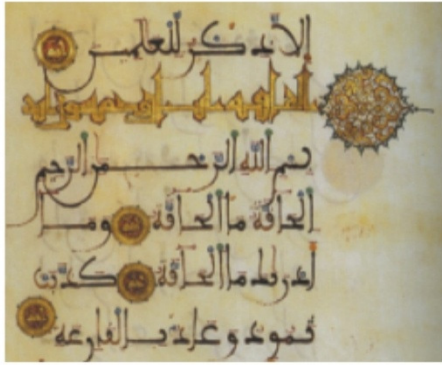 إلا ذكر للعلمين
وخمسون
بسم الله الرحمن الرحيم
الحاقة ما الحاقة وما
أدريك ما الحاقة كذبت
ثمود وعاد بالقارعة